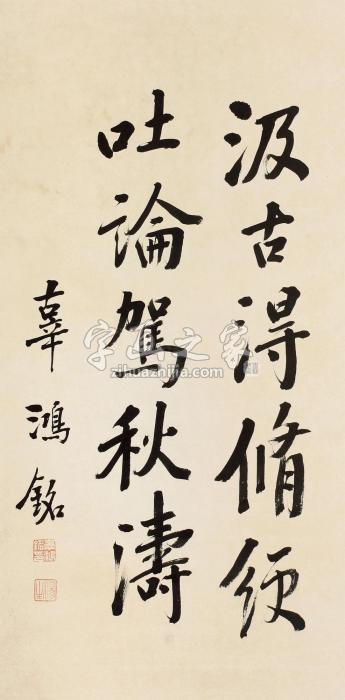 汲古得脩綆
吐論駕秋濤
辜鴻銘
字画之家
zihuazhijia.com